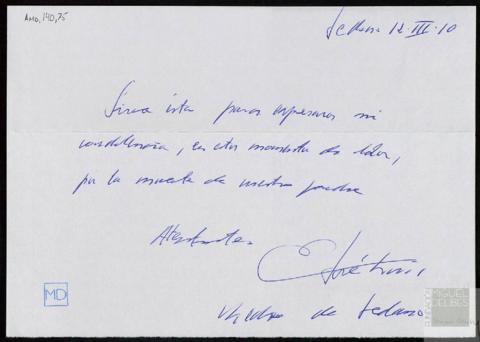 AMD, 140, 75
Sedano 12-III-10
Sirva ésta para expresaros mi
condolencia, en estos momentos de dolor,
por la muerte de vuestro padre
Atentamente
de Sedano
MD
MIGUEL
DELIBES